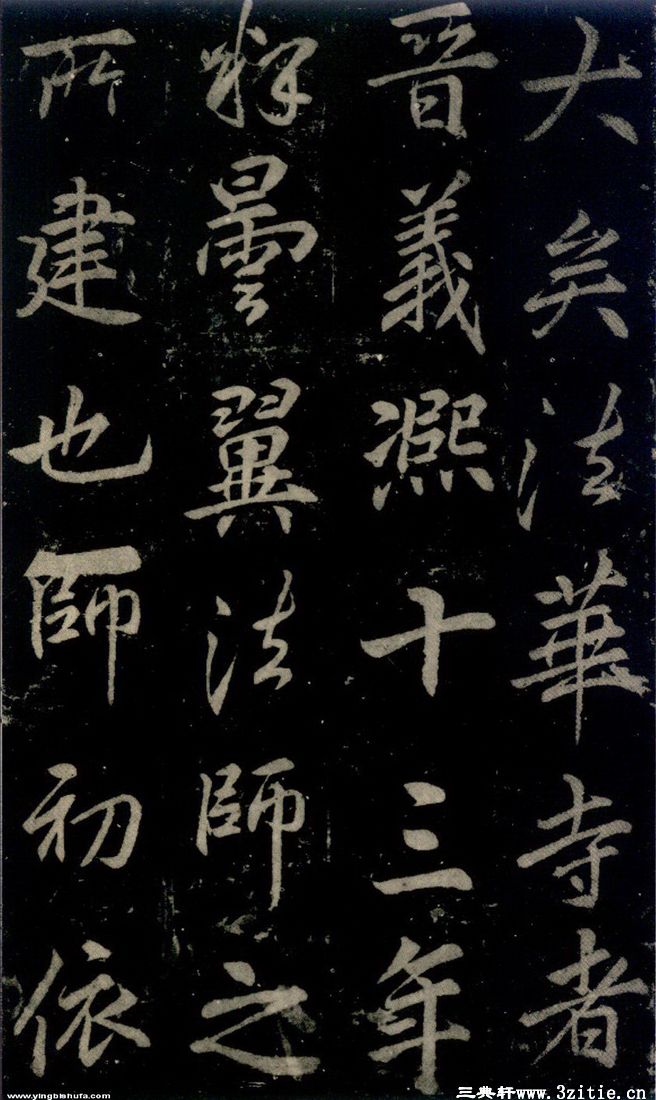 大矣法華寺者
晉義熙十三年
釋曇翼法師之
所建也師初依
www.yingbishufa.com
三典轩www.3zitie.cn